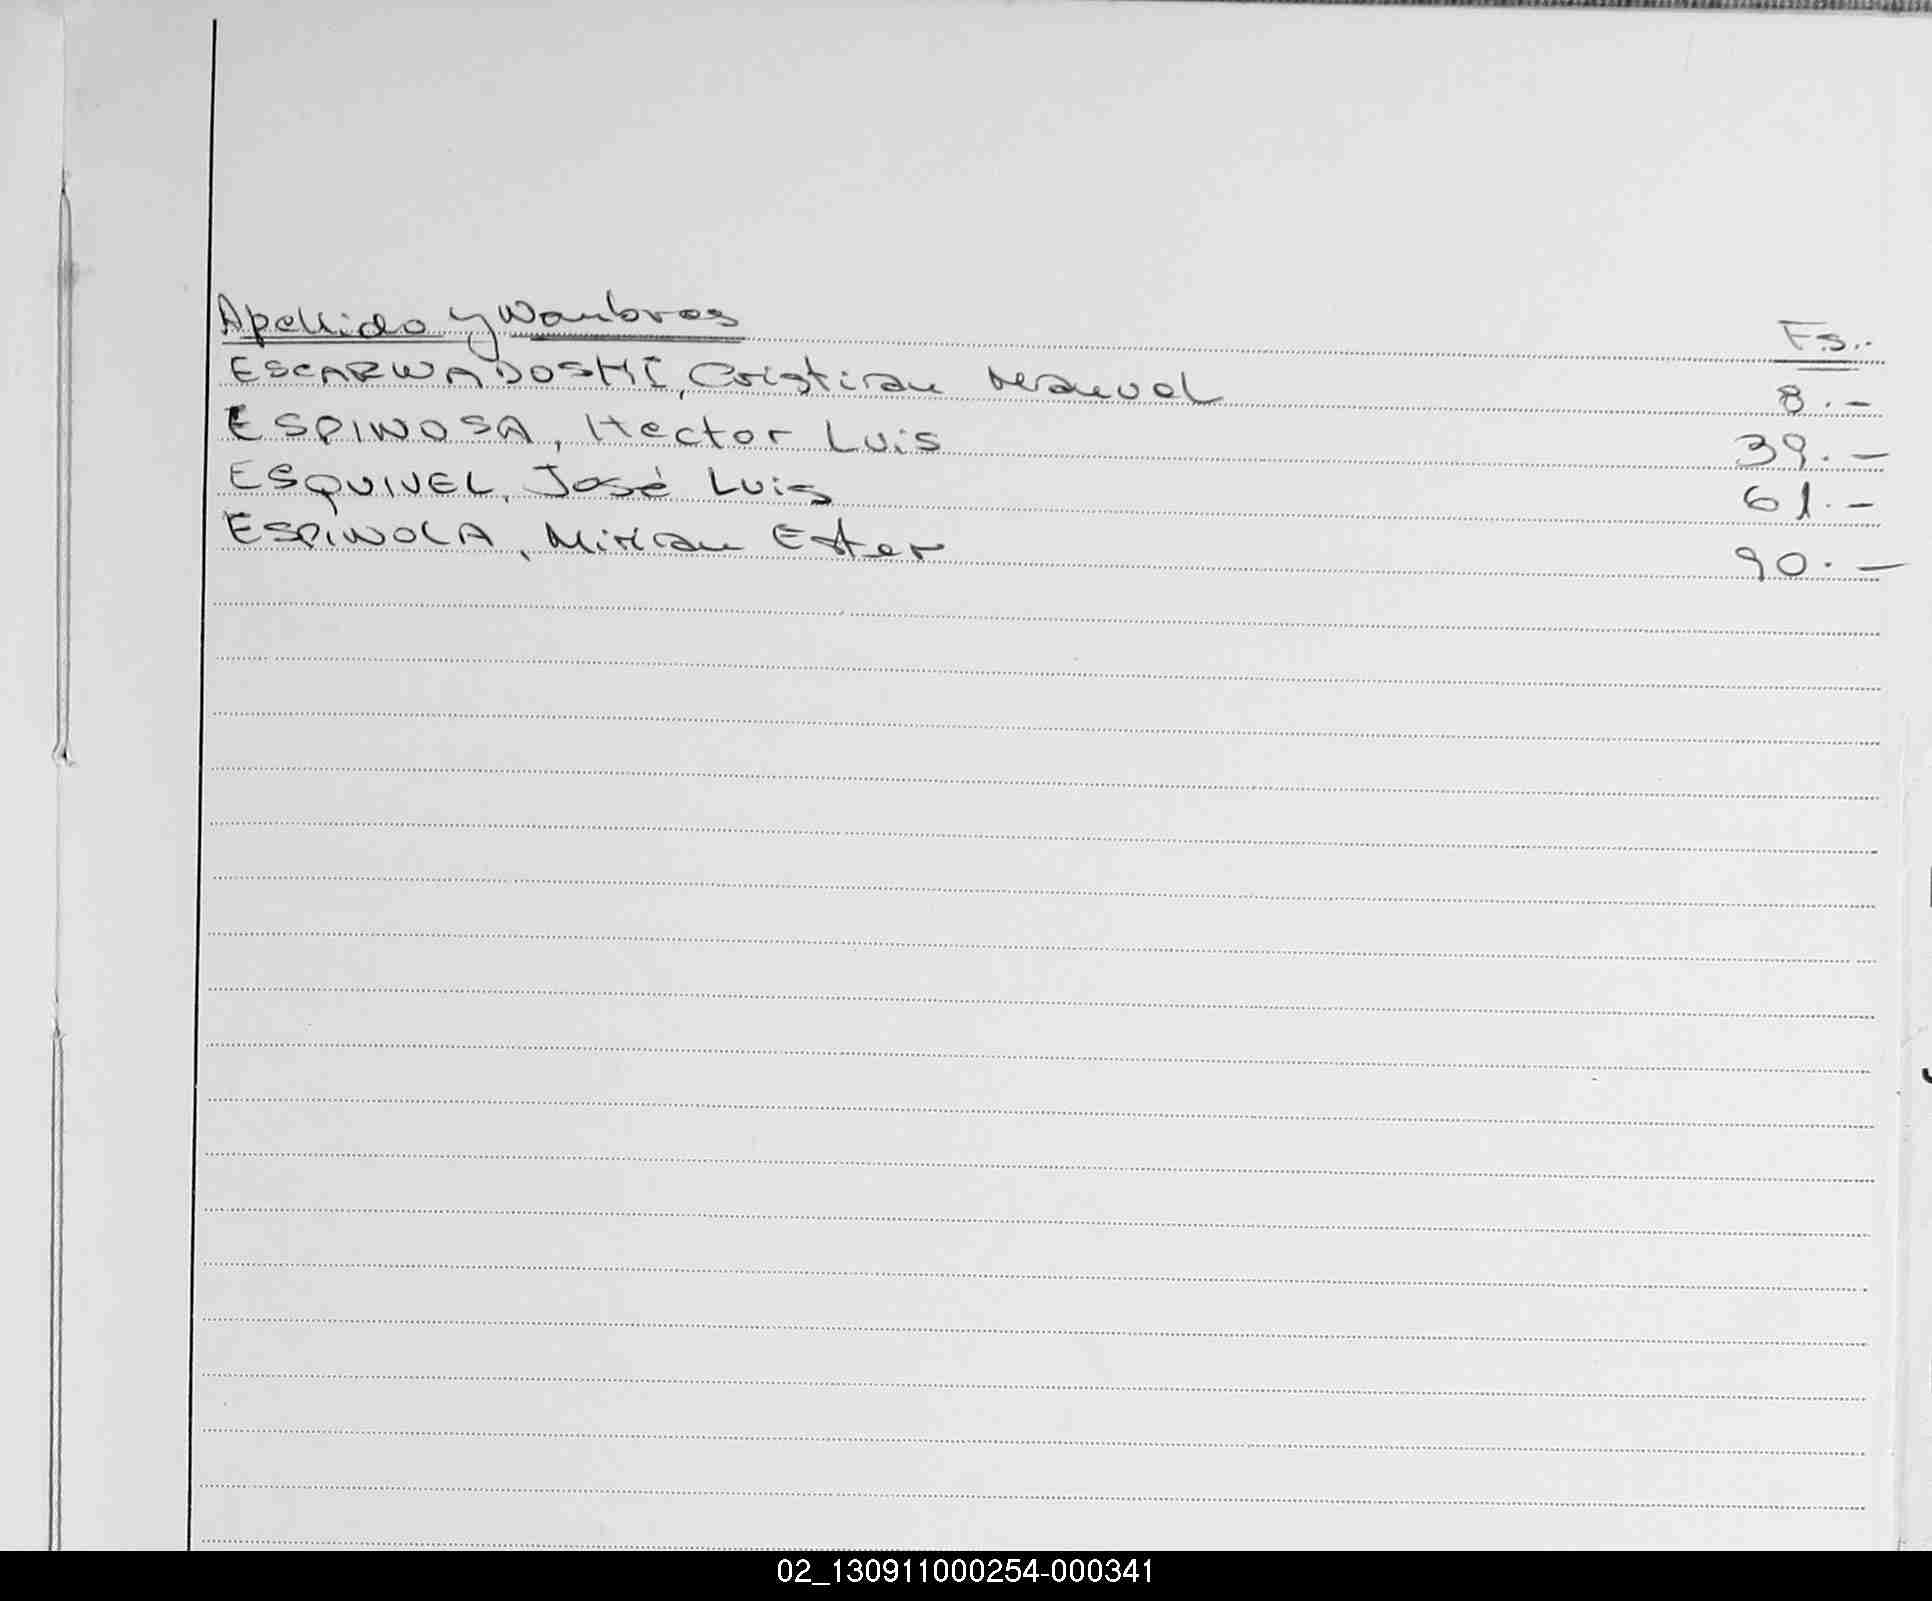 Apellido y Nombres Fs.
ESCARNADOSHI, Cristian Manuel 8.-
ESPINOSA, Hector Luis 39.-
ESQUIVEL, José Luis 61.-
ESPINOLA, Mirian Ester 90.-
02_130911000254-000341